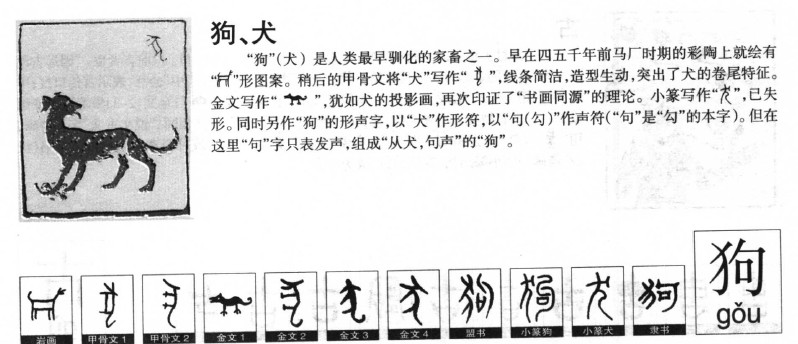 狗、犬
“狗”(犬）是人类最早驯化的家畜之一。早在四五千年前马厂时期的彩陶上就绘有
“ ”形图案。稍后的甲骨文将“犬”写作“ ”，线条简洁，造型生动，突出了犬的卷尾特征。
金文写作“ ”，犹如犬的投影画，再次印证了“书画同源”的理论。小篆写作“ ”，已失
形。同时另作“狗”的形声字，以“犬”作形符，以“句(勾)”作声符(“句”是“勾”的本字)。但在
这里“句”字只表发声，组成“从犬，句声”的“狗”。
岩画 甲骨文1 甲骨文2 金文1 金文2 金文3 金文4 盟书 小篆狗 小篆犬 隶书
狗
gǒu